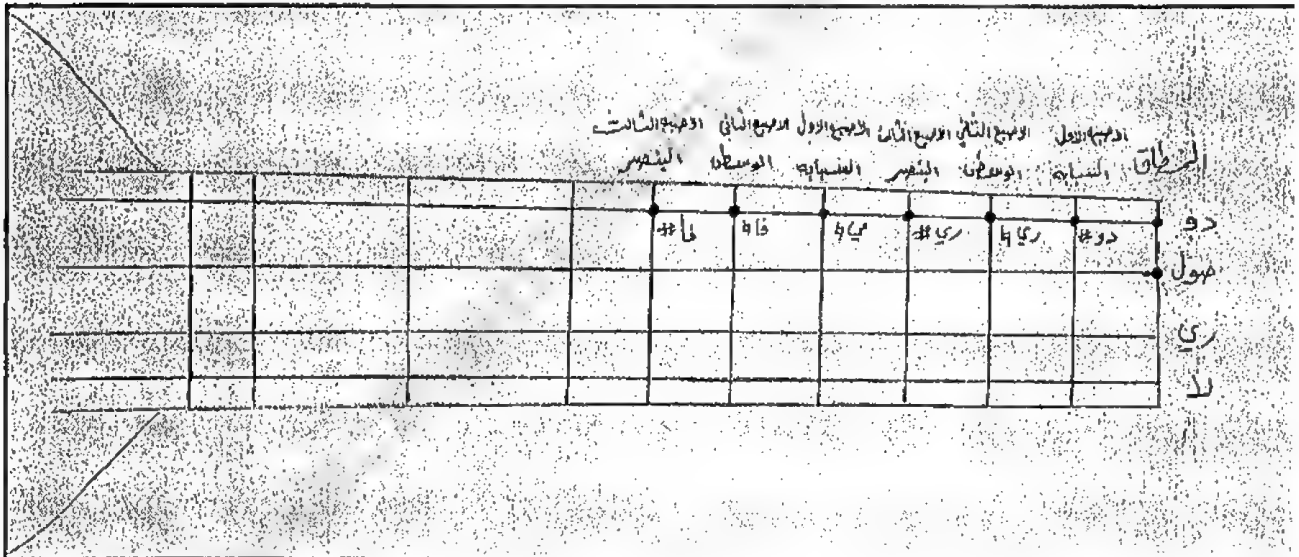 الاصبع الاول الاصبع الثاني الاصبع الثالث الاصبع الاول الاصبع الثاني الاصبع الثالث
السبابه الوسطى البنصر السبابه الوسطى البنصر
دو
دو# ري♮ ري# مي♮ فا♮ فا#
صول
ري
لا